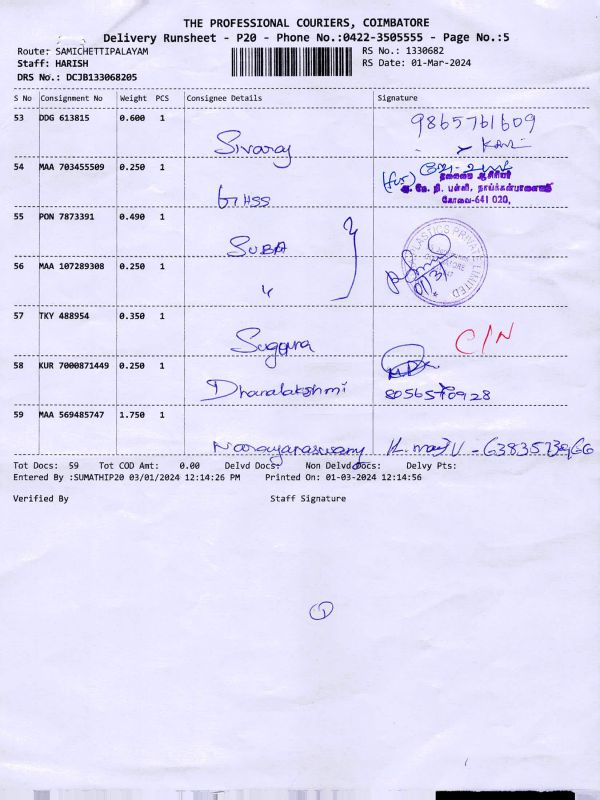 THE PROFESSIONAL COURIERS, COIMBATORE
Delivery Runsheet - P20 - Phone No.:0422-3505555 - Page No.:5
Route: SAMICHETTIPALAYAM
RS No.: 1330682
Staff: HARISH
RS Date: 01-Mar-2024
DRS No.: DCJB133068205
S No Consignment No Weight PCS Consignee Details Signature
53 DDG 613815 0.600 1
9865761609
Sivaraj
54 MAA 703455509 0.250 1
(for)
தலைமை ஆசிரியர்
கோவை-641 020,
GHSS
55 PON 7873391 0.490 1
SUBA
56 MAA 107289308 0.250 1
"
57 TKY 488954 0.350 1
C/N
Suguna
58 KUR 7000871449 0.250 1
Dhanalakshmi
59 MAA 569485747 1.750 1
Narayanaswamy
Tot Docs: 59 Tot COD Amt: 0.00 Delvd Docs: Non Delvd Docs: Delvy Pts:
Entered By :SUMATHIP20 03/01/2024 12:14:26 PM Printed On: 01-03-2024 12:14:56
Verified By Staff Signature
1